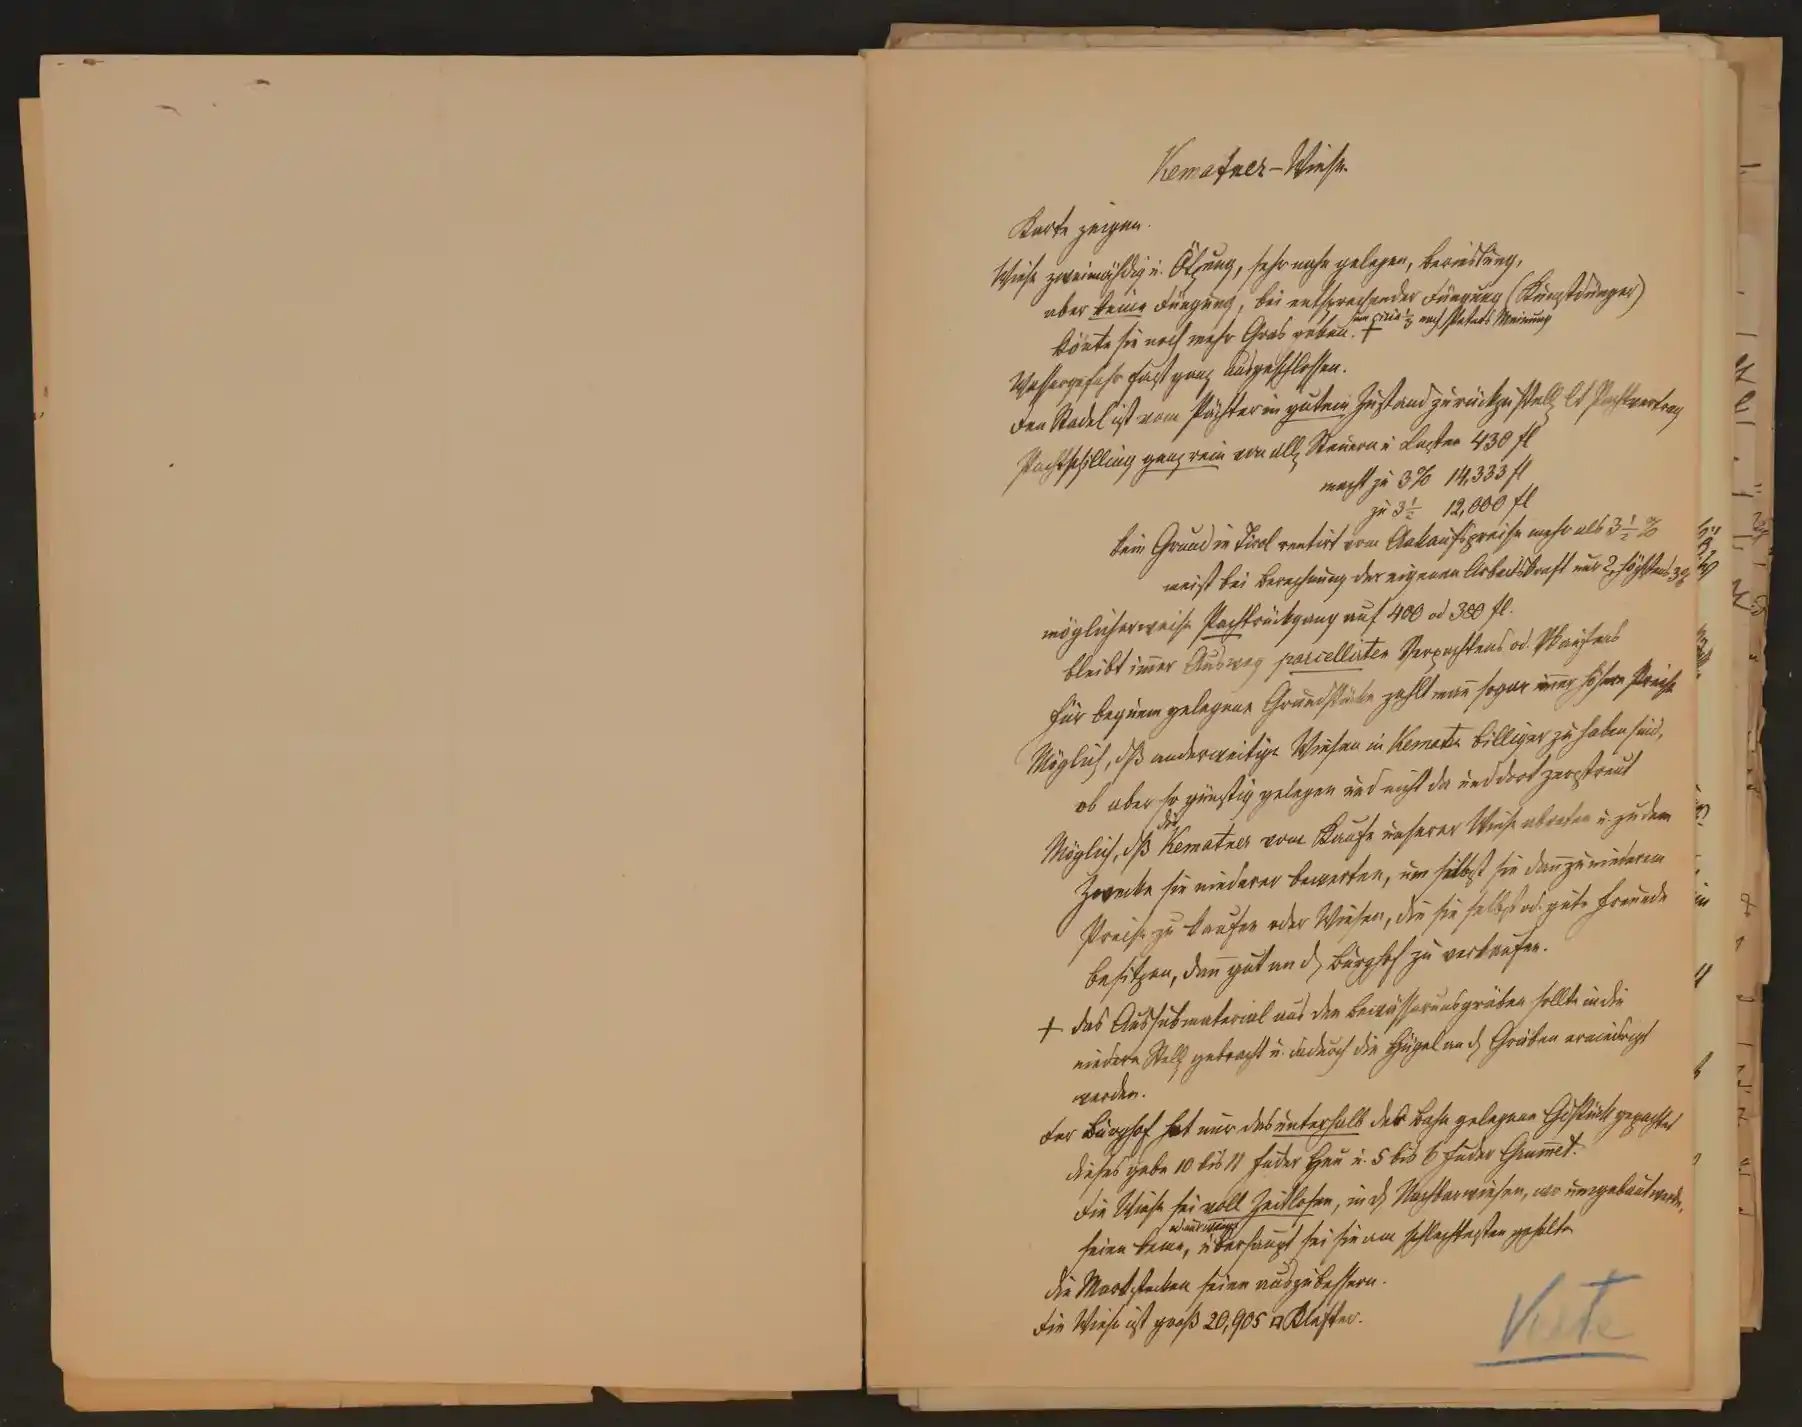 Kematner-Wiese
Karte zeigen.
Wiese zweimähdig u. Ötzung, sehr nahe gelegen, Berieslung,
aber keine Düngung, bei entsprechender Düngung (Kunstdünger)
um circa ⅓ nach Peters Meinung
könte sie noch mehr Gras geben. +
Wassergefahr fast ganz ausgeschlossen.
Den Stadel ist vom Pächter in gutem Zustand zurückzustell lt Pachtvertrag
Pachtschilling ganz rein von all Steuern u Lasten 430 fl
macht zu 3% 14,333 fl
zu 3½ 12,000 fl
kein Grund in Tirol rentirt vom Ankaufspreise mehr als 3½ %
meist bei Berechnung der eigenen Arbeitskraft nur 2, höchstens 3%
möglicherweise Pachtrückgang auf 400 od 380 fl.
bleibt im̄er Ausweg parcellirten Verpachtens od.
für bequem gelegene Grundstücke zahlt man̄ sogar im̄er höhere Preise
Möglich, dß anderweitige Wiesen in Kematen billiger zu haben sind,
ob aber so günstig gelegen und nicht da und dort zerstreut
Möglich, dß die Kematner vom Kaufe unserer Wiese abraten u. zu dem
Zwecke sie niederer bewerten, um selbst sie dan̄ zu niederem
Preise zu kaufen oder Wiesen, die sie selbst od. gute Freunde
besitzen, dan̄ gut an d Burghof zu verkaufen.
+ das Aushubmaterial aus den Bewässerungsgräben sollte in die
niedere Stell gebracht u. dadurch die Hügel an d Gräben erniedrigt
werden.
Der Burghof hat nur das unterhalb der Bahn gelegene Gdstück gepachtet
dieses gebe 10 bis 11 Fuder Heu u. 5 bis 6 Fuder Grum̄et.
Die Wiese sei voll Zeitlosen, in d Nachbarwiesen, wo umgebaut werde,
od nur wenige
seien keine, überhaupt sei sie am schlechtesten gehalten
die Markstecken seien auszubessern.
Die Wiese ist groß 20,905 □ Klafter.
Verte